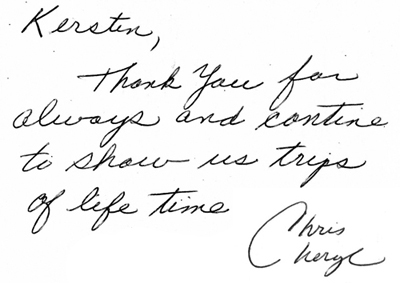 Kersten,
Thank You for
always and contine
to show us trips
of life time
Chris
Cheryl